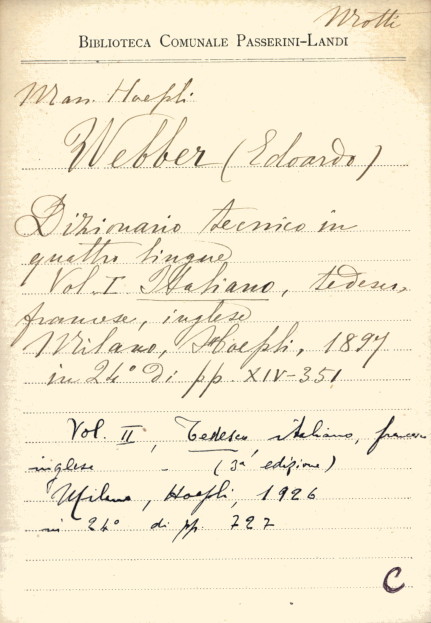 Wrotti
BIBLIOTECA COMUNALE PASSERINI-LANDI
Man. Hoepli
Webber (Edoardo)
Dizionario tecnico in
quattro lingue
Vol. I Italiano, tedesco,
francese, inglese
Milano, Hoepli, 1897
in 24° di pp. XIV-351
Vol. II, Tedesco, italiano, francese
inglese - (3ª edizione)
Milano, Hoepli, 1926
in 24° di pp. 727
C